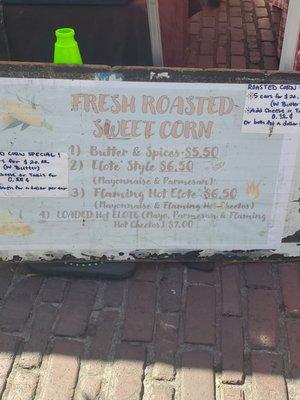 FRESH ROASTED
SWEET CORN
1) Butter & Spices $5.50
2) Elote Style $6.50
(Mayonnaise & Parmesan)
3) Flaming Hot Elote $6.50
(Mayonnaise & Flaming Hot Cheetos)
4) LOADED Hot ELOTE (Mayo, Parmesan & Flaming
Hot Cheetos) $7.00
ED CORN SPECIAL!
for $20.00
(w Butter)
Cheese or Takis for
0.50 ¢
both for a dollar per ear
ROASTED CORN
5 ears for $20.
(w Butter
Add Cheese or Ta
0.50 ¢
or both for a dollar